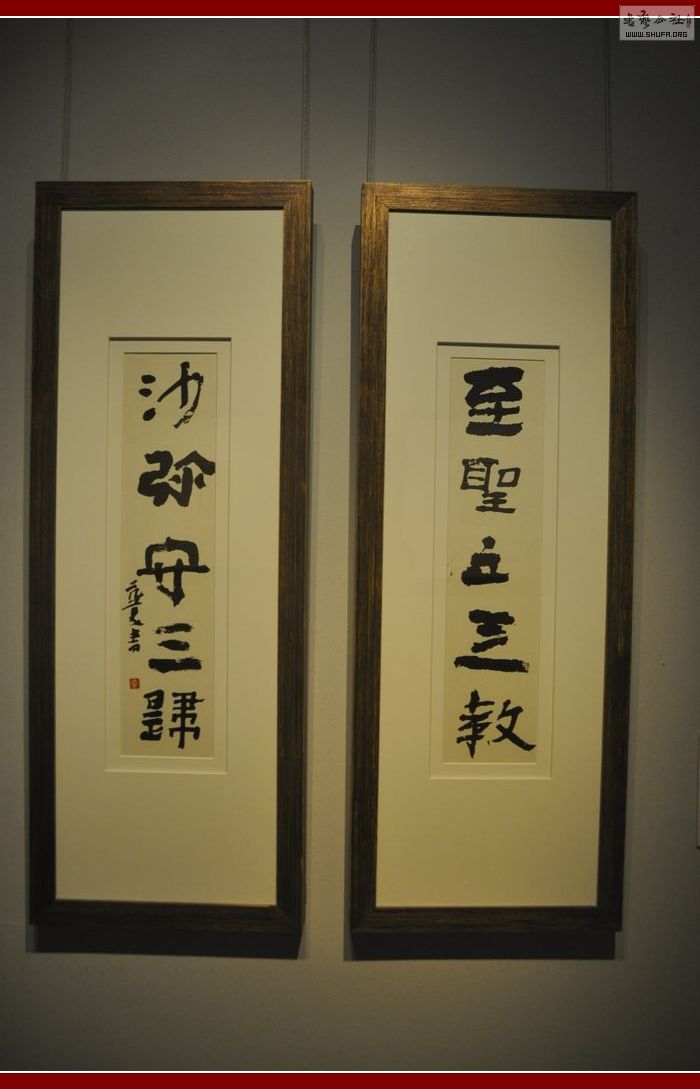 書藝公社
WWW.SHUFA.ORG
至聖立三教
沙弥守三歸